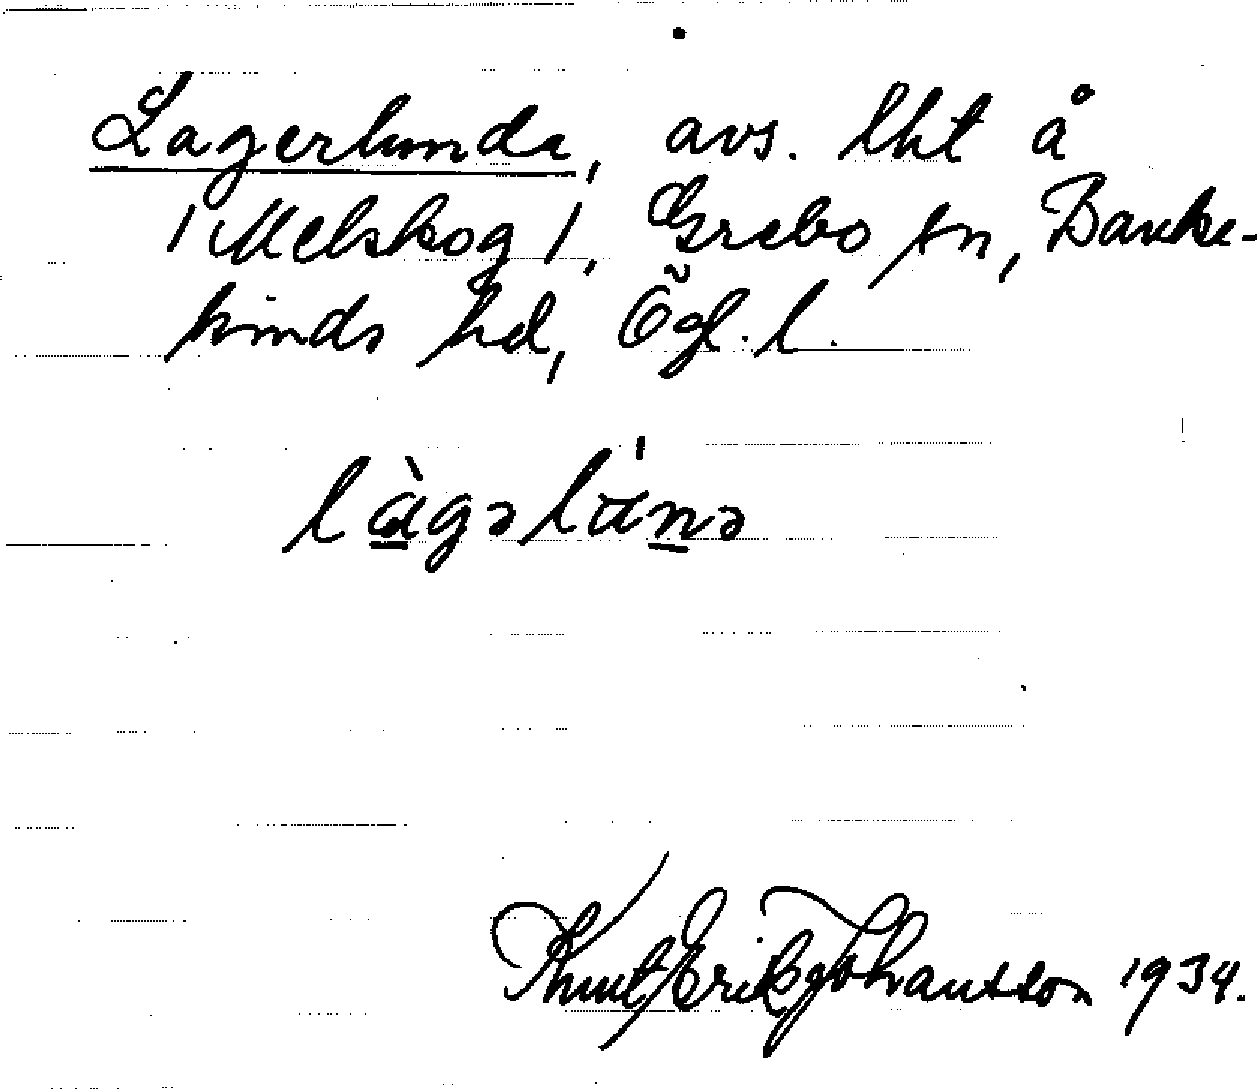 Lagerlunda, avs. lht å
/Melskog/, Grebo sn, Banke-
kinds hd, Ögl. l.
làgəlúnə
Knut Erik Johansson 1934.